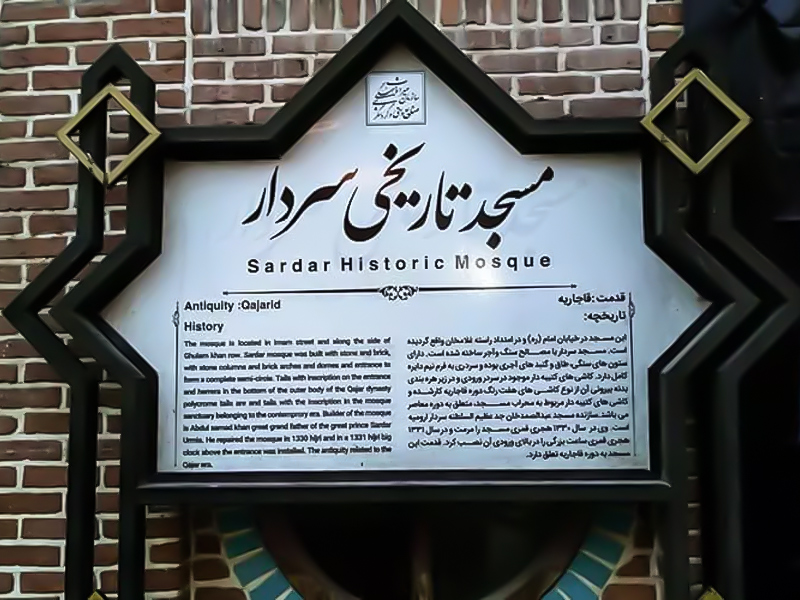 مسجد تاریخی سردار
Sardar Historic Mosque
Antiquity :Qajarid
History
The mosque is located in Imam street and along the side of
Ghulam khan row. Sardar mosque was built with stone and brick,
with stone columns and brick arches and domes and entrance to
form a complete semi-circle. Tails with inscription on the entrance
and hamra in the bottom of the outer body of the Qajar dynasty
polycrome tails are and tails with the inscription in the mosque
sanctuary belonging to the contemprory era. Builder of the mosque
is Abdul samad khan great grand father of the great prince Sardar
Urmia. He repaired the mosque in 1330 hijri and in a 1331 hijri big
clock above the entrance was installed. The antiquity related to the
Qajar era.
قدمت :قاجاریه
تاریخچه:
این مسجد در خیابان امام (ره) و در امتداد راسته غلامخان واقع گردیده
است. مسجد سردار با مصالح سنگ و آجر ساخته شده است. دارای
ستون های سنگی، طاق و گنبد های آجری بوده و سردری به فرم نیم دایره
کامل دارد. کاشی های کتیبه دار موجود در سردر ورودی و در زیر هره بندی
بدنه بیرونی آن از نوع کاشی های هفت رنگ دوره قاجاریه کارشده و
کاشی های کتیبه دار مربوط به محراب مسجد، متعلق به دوره معاصر
می باشد. سازنده مسجد عبدالصمدخان جد عظیم السلطنه سردار ارومیه
است. وی در سال ۱۳۳۰ هجری قمری مسجد را مرمت و در سال ۱۳۳۱
هجری قمری ساعت بزرگی را در بالای ورودی آن نصب کرد. قدمت این
مسجد به دوره قاجاریه تعلق دارد.